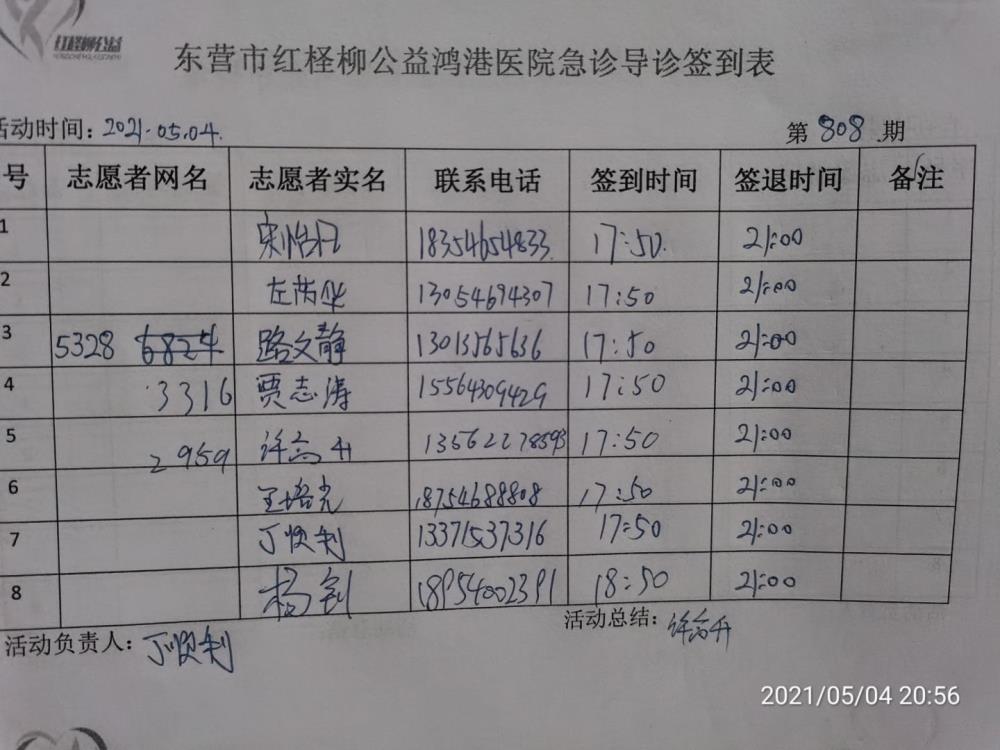 红柽柳公益
东营市红柽柳公益鸿港医院急诊导诊签到表
活动时间：2021.05.04. 第 808 期
号 志愿者网名 志愿者实名 联系电话 签到时间 签退时间 备注
1 18354654833 17:50 21:00
2 13054694307 17:50 21:00
3 5328 路文静 13013565636 17:50 21:00
4 3316 贾志涛 15564309429 17:50 21:00
5 2959 许高升 13562278593 17:50 21:00
6 18754688808 17:50 21:00
7 丁顺利 13371537316 17:50 21:00
8 杨钊 18954002391 18:50 21:00
活动负责人：丁顺利 活动总结：许高升
2021/05/04 20:56